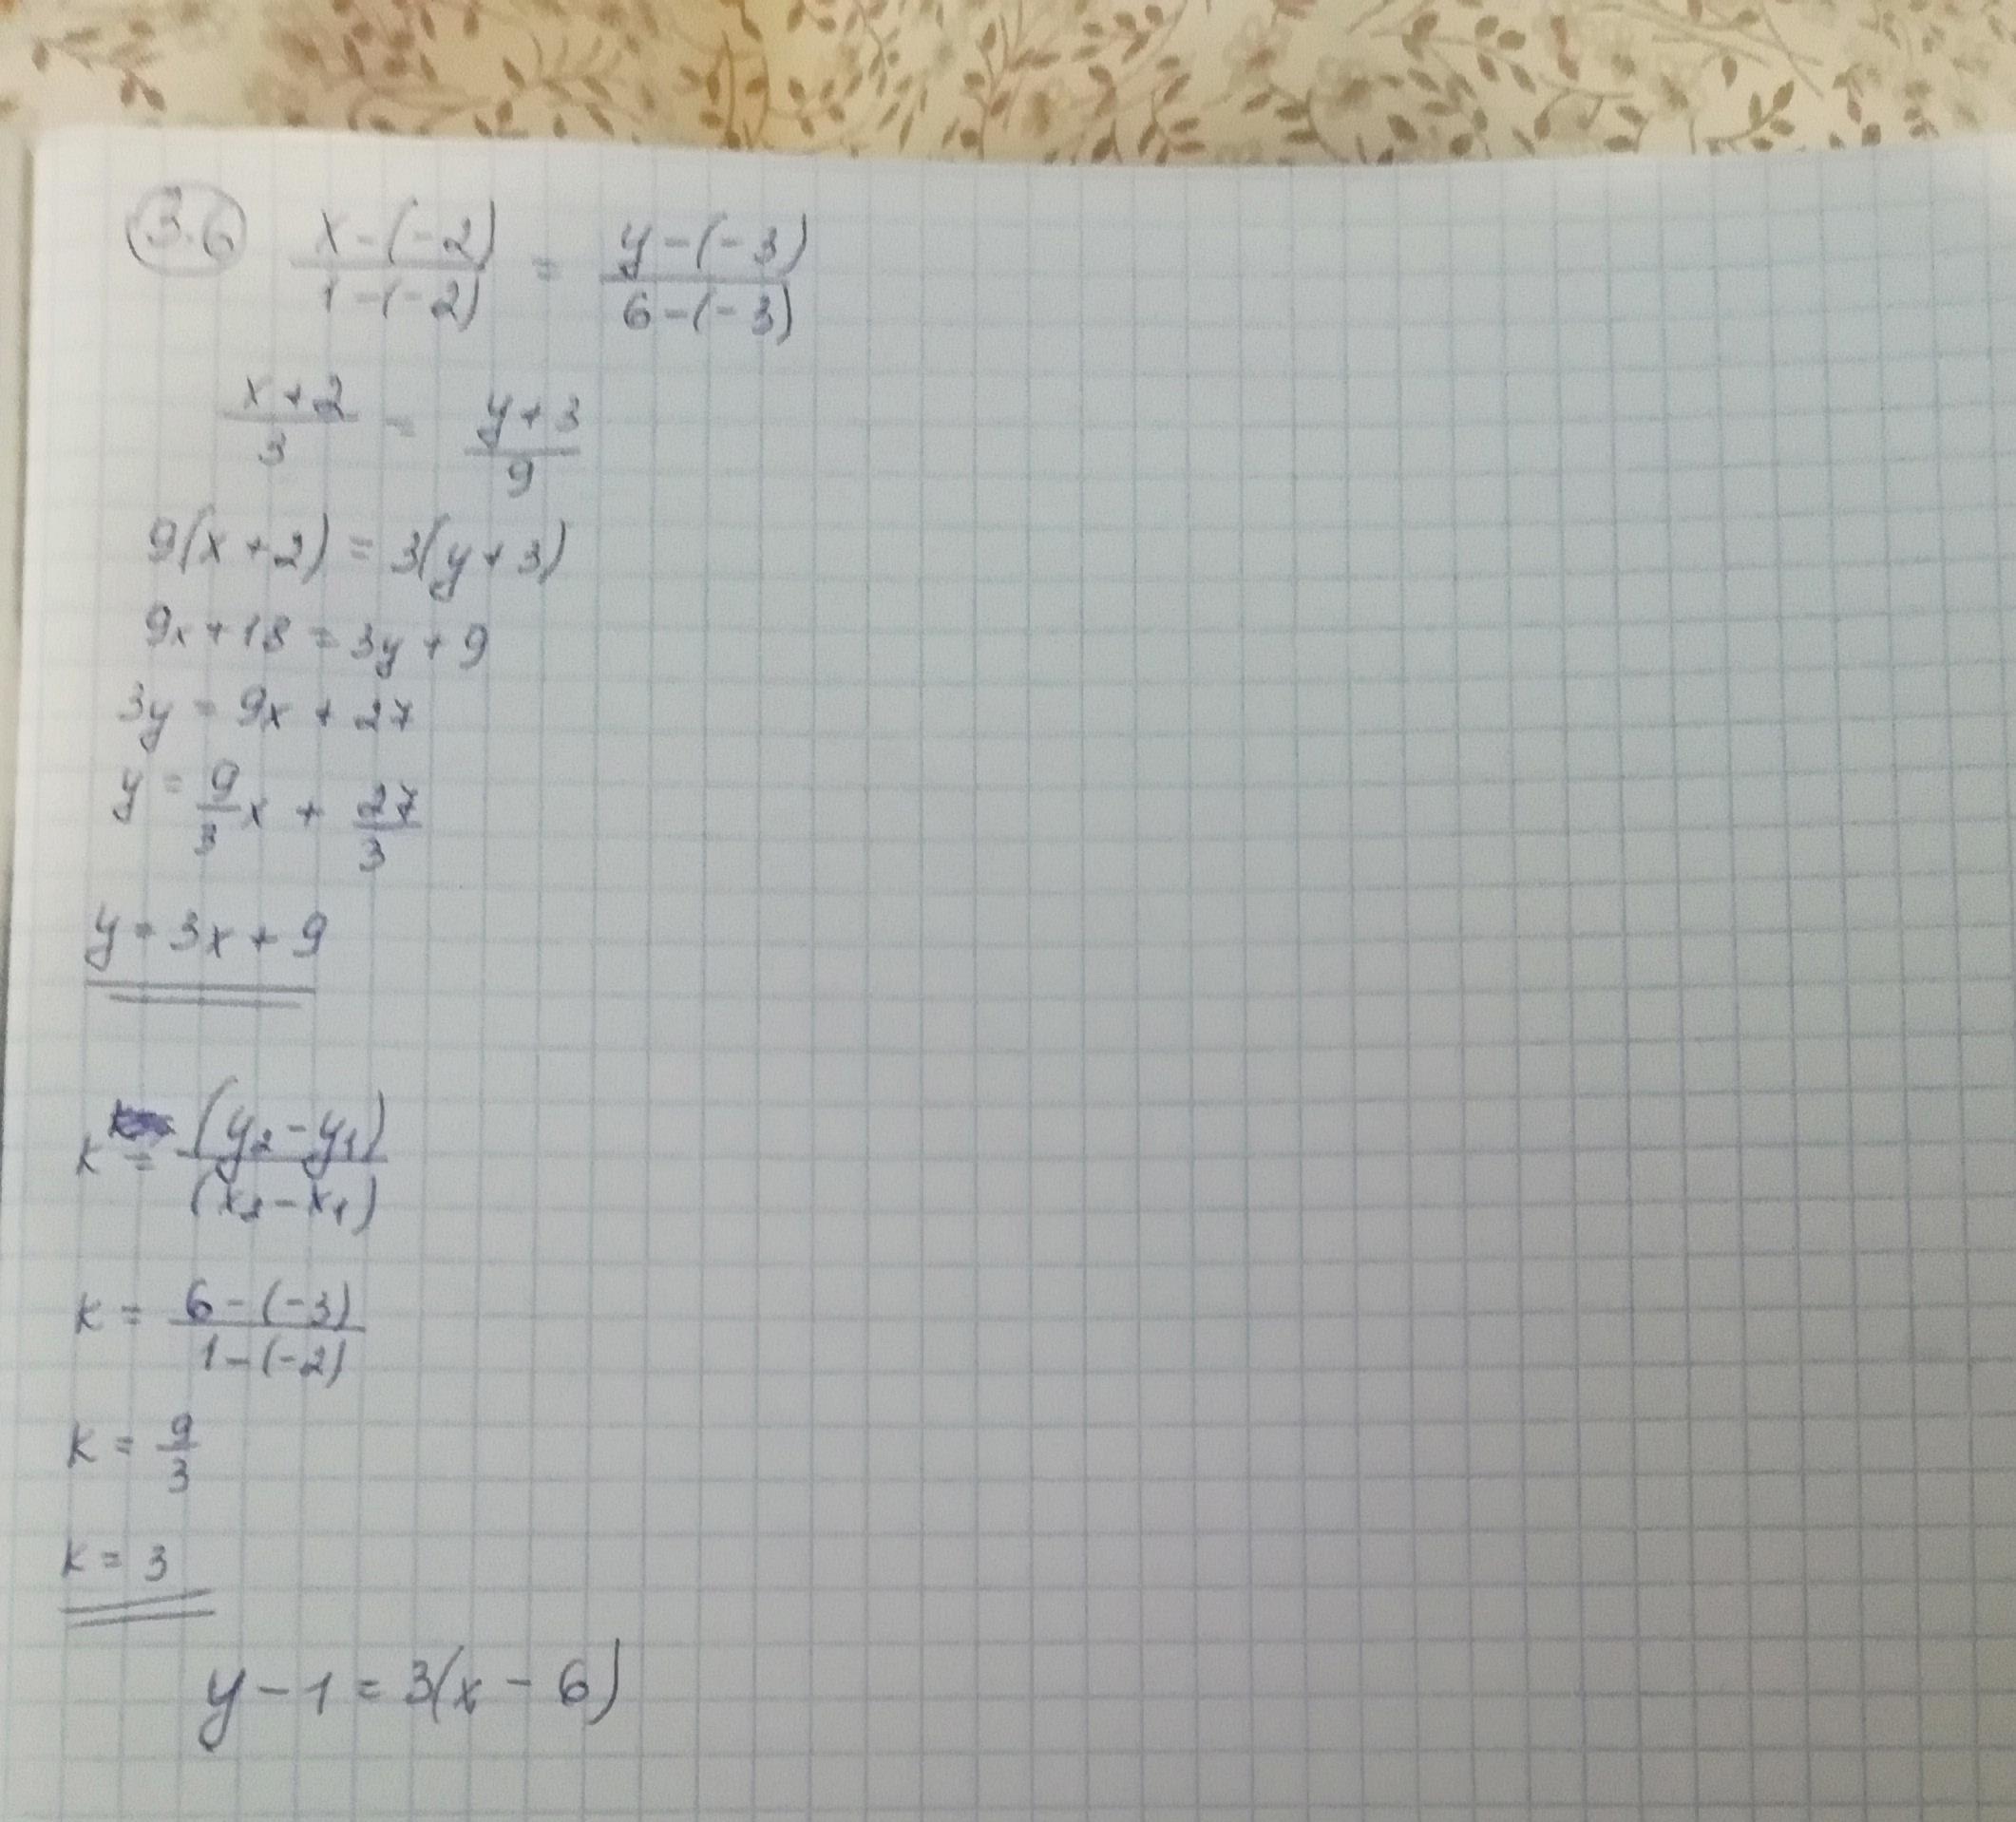 3.6 x-(-2)/1-(-2) = y-(-3)/6-(-3)
x+2/3 = y+3/9
9(x+2) = 3(y+3)
9x+18 = 3y+9
3y = 9x + 27
y = 9/3x + 27/3
y = 3x + 9
k = (y₂-y₁)/(x₂-x₁)
k = 6-(-3)/1-(-2)
k = 9/3
k = 3
y-1 = 3(x-6)